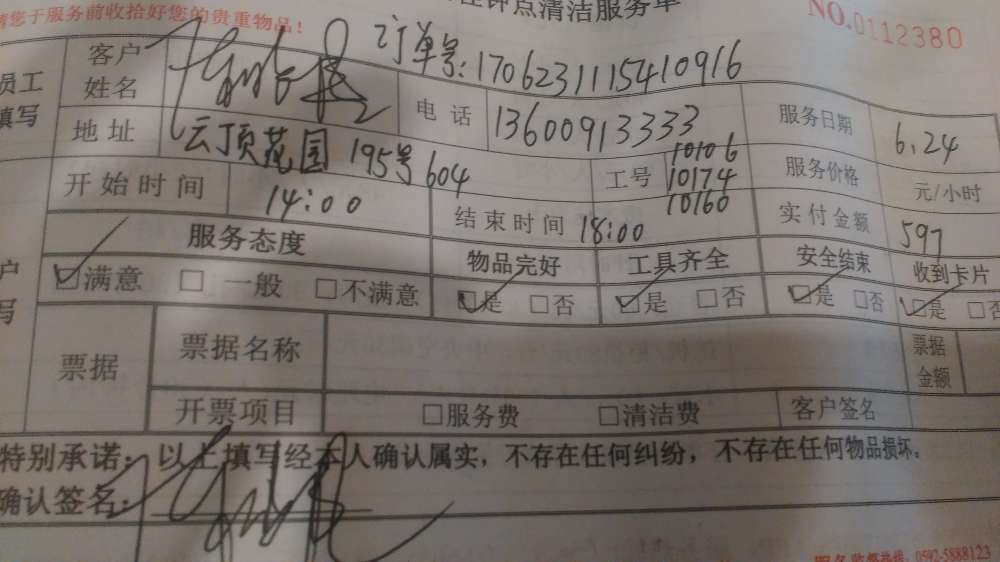 请您于服务前收拾好您的贵重物品！ 钟点清洁服务单 NO.0112380
订单号:1706231115410916
员工填写 客户姓名 电话 13600913333 服务日期 6.24
地址 云顶花园 195号604 工号 10106 10174 10160 服务价格 元/小时
开始时间 14:00 结束时间 18:00 实付金额 597
服务态度 物品完好 工具齐全 安全结束 收到卡片
☑满意 □一般 □不满意 ☑是 □否 ☑是 □否 ☑是 □否 ☑是 □否
票据 票据名称 票据金额
开票项目 □服务费 □清洁费 客户签名
特别承诺：以上填写经本人确认属实，不存在任何纠纷，不存在任何物品损坏。
确认签名：
服务监督热线：0592-5888123